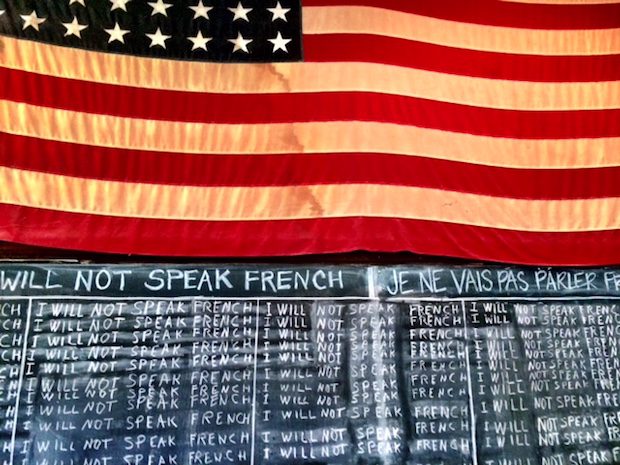 WILL NOT SPEAK FRENCH JE NE VAIS PAS PARLER FR
CH I WILL NOT SPEAK FRENCH I WILL NOT SPEAK FRENCH I WILL NOT SPEAK FRENCH
CH I WILL NOT SPEAK FRENCH I WILL NOT SPEAK FRENCH I WILL NOT SPEAK FRENCH
CH I WILL NOT SPEAK FRENCH I WILL NOT SPEAK FRENCH I WILL NOT SPEAK FRENCH
CH I WILL NOT SPEAK FRENCH I WILL NOT SPEAK FRENCH I WILL NOT SPEAK FRENCH
CH I WILL NOT SPEAK FRENCH I WILL NOT SPEAK FRENCH I WILL NOT SPEAK FREN
CH I WILL NOT SPEAK FRENCH I WILL NOT SPEAK FRENCH I WILL NOT SPEAK FREN
CH I WILL NOT SPEAK FRENCH I WILL NOT SPEAK FRENCH I WILL NOT SPEAK FREN
CH I WILL NOT SPEAK FRENCH I WILL NOT SPEAK FRENCH I WILL NOT SPEAK FREN
H I WILL NOT SPEAK FRENCH I WILL NOT SPEAK FRENCH I WILL NOT SPEAK FREN
H WILL NOT SPEAK FRENCH I WILL NOT SPEAK FRENCH I WILL NOT SPEAK FREN